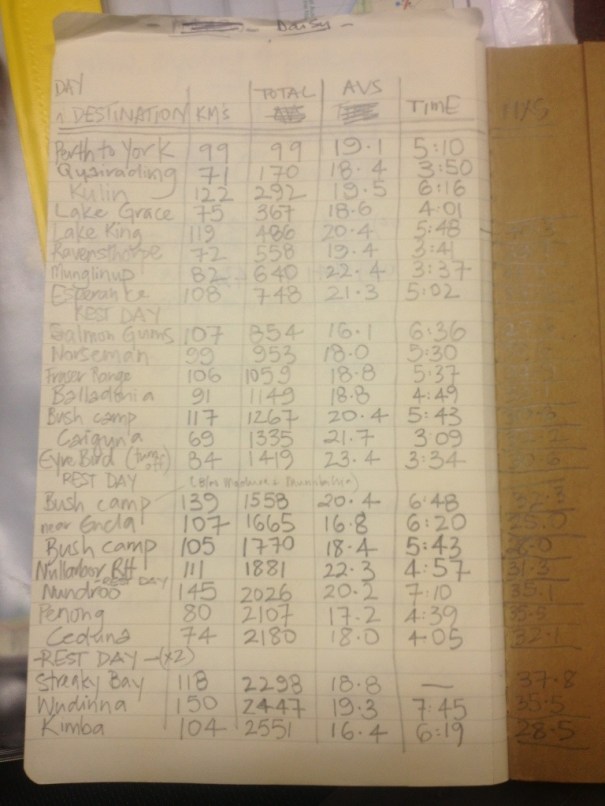 Daisy -
DAY TOTAL AVS
DESTINATION KM's TIME MXS
Perth to York 99 99 19.1 5:10
Quairading 71 170 18.4 3:50
Kulin 122 292 19.5 6:16
Lake Grace 75 367 18.6 4:01
Lake King 119 486 20.4 5:48
Ravensthorpe 72 558 19.4 3:41
Munglinup 82 640 22.4 3:37
Esperance 108 748 21.3 5:02
REST DAY
Salmon Gums 107 854 16.1 6:36
Norseman 99 953 18.0 5:30
Fraser Range 106 1059 18.8 5:37
Balladonia 91 1149 18.8 4:49
Bush camp 117 1267 20.4 5:43
Caiguna 69 1335 21.7 3:09
Eyre Bird (turn off) 84 1419 23.4 3:34
REST DAY
Bush camp 139 1558 20.4 6:48 32.3
near Eucla 107 1665 16.8 6:20 25.0
Bush camp 105 1770 18.4 5:43
Nullarbor RH 111 1881 22.3 4:57 31.3
REST DAY
Nundroo 145 2026 20.2 7:10 35.1
Penong 80 2107 17.2 4:39 35.5
Ceduna 74 2180 18.0 4:05 32.1
-REST DAY -(x2)
Streaky Bay 118 2298 18.8 — 37.8
Wudinna 150 2447 19.3 7:45 35.5
Kimba 104 2551 16.4 6:19 28.5